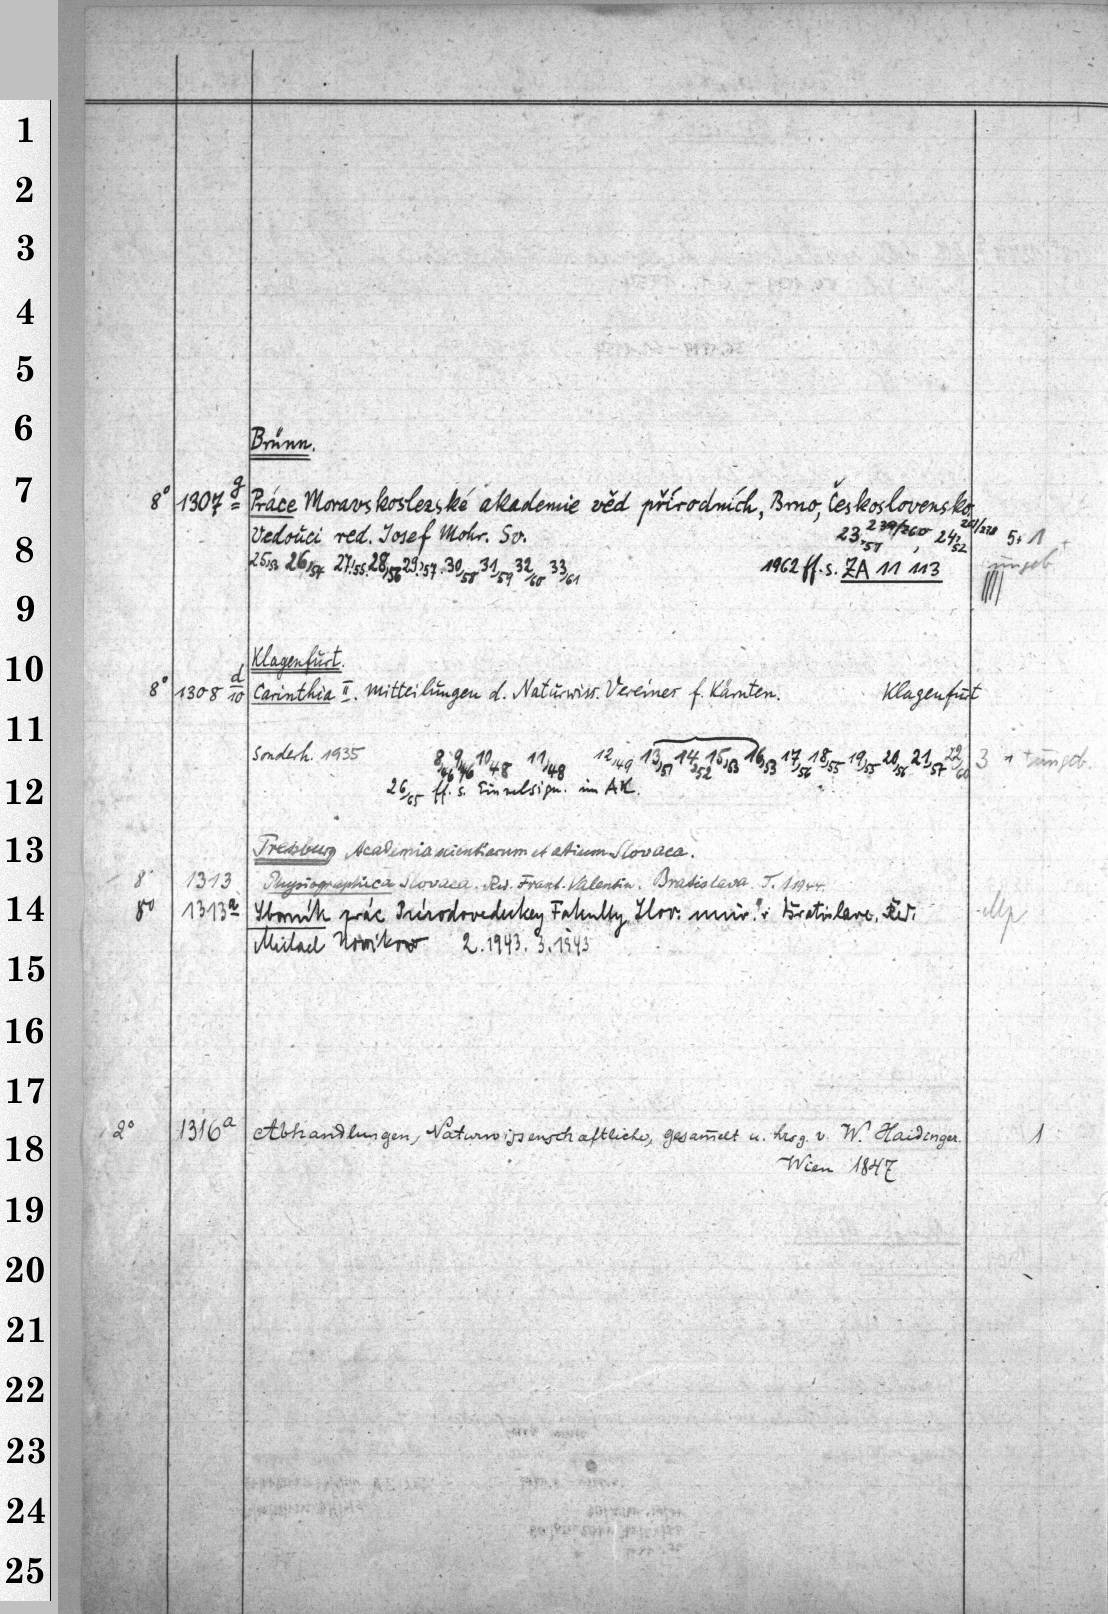 1
2
3
4
5
6
Brünn.
7
8° 1307 g Práce Moravskoslezské akademie věd přírodních, Brno, Československo,
Vedoúci red. Josef Mohr. Sv. 23,51 239/260, 24,52 5+1
8
25,53 26,54 27,55. 28,56 29,57. 30/58 31/59 32/60 33/61 1962 ff. s. ZA 11 113 ungeb.
9
Klagenfurt.
10
8° 1308 d/10 Carinthia II. Mitteilungen d. Naturwiss. Vereines f. Kärnten. Klagenfurt
11
Sonderh. 1935 8/46 9/46 10/48 11/48 12/49 13/51 14/52 15/53 16/53 17/56 18/55 19/55 20/56 21/57 22/60 3 + ungeb.
12
26/65 ff. s. Einzelsign. im AK.
13
Pressburg Academia scientiarum et artium Slovaca.
8° 1313 Physiographica Slovaca. Red. Frant. Valentin. Bratislava. T. 1 1944.
14
8° 1313a Sborník prác Prírodovedeckej Fakulty Slov. univ. v Bratislave, Red.
Michael Novikow 2.1943. 3.1943
15
16
17
2° 1316a Abhandlungen, Naturwissenschaftliche, gesamelt u. hrsg. v. W. Haidinger. 1
18
Wien 1847
19
20
21
22
23
24
25